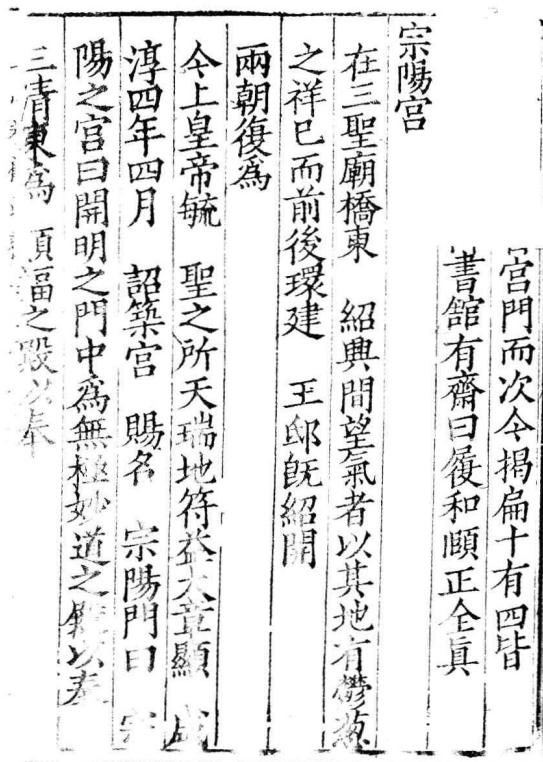 宮門而次今揭扁十有四皆
書館有齋曰履和頤正全眞
宗陽宮
在三聖廟橋東 紹興間望氣者以其地有欝葱
之祥已而前後環建 王邸旣紹開
兩朝復爲
今上皇帝毓 聖之所天瑞地符益大章顯 咸
淳四年四月 詔築宮 賜名 宗陽門曰 宗
陽之宮曰開明之門中爲無極妙道之殿以奉
三清東爲 順福之殿以奉